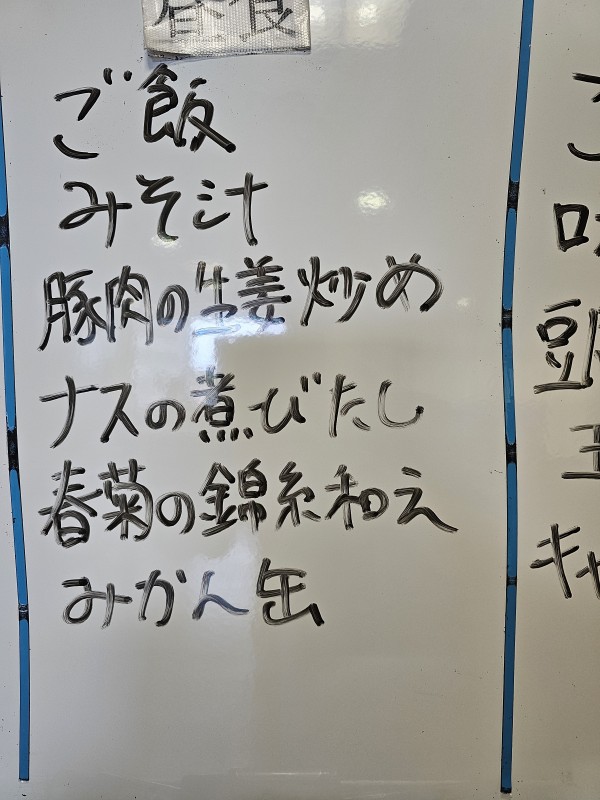 昼食
ご飯
みそ汁
豚肉の生姜炒め
ナスの煮びたし
春菊の錦糸和え
みかん缶
キャ